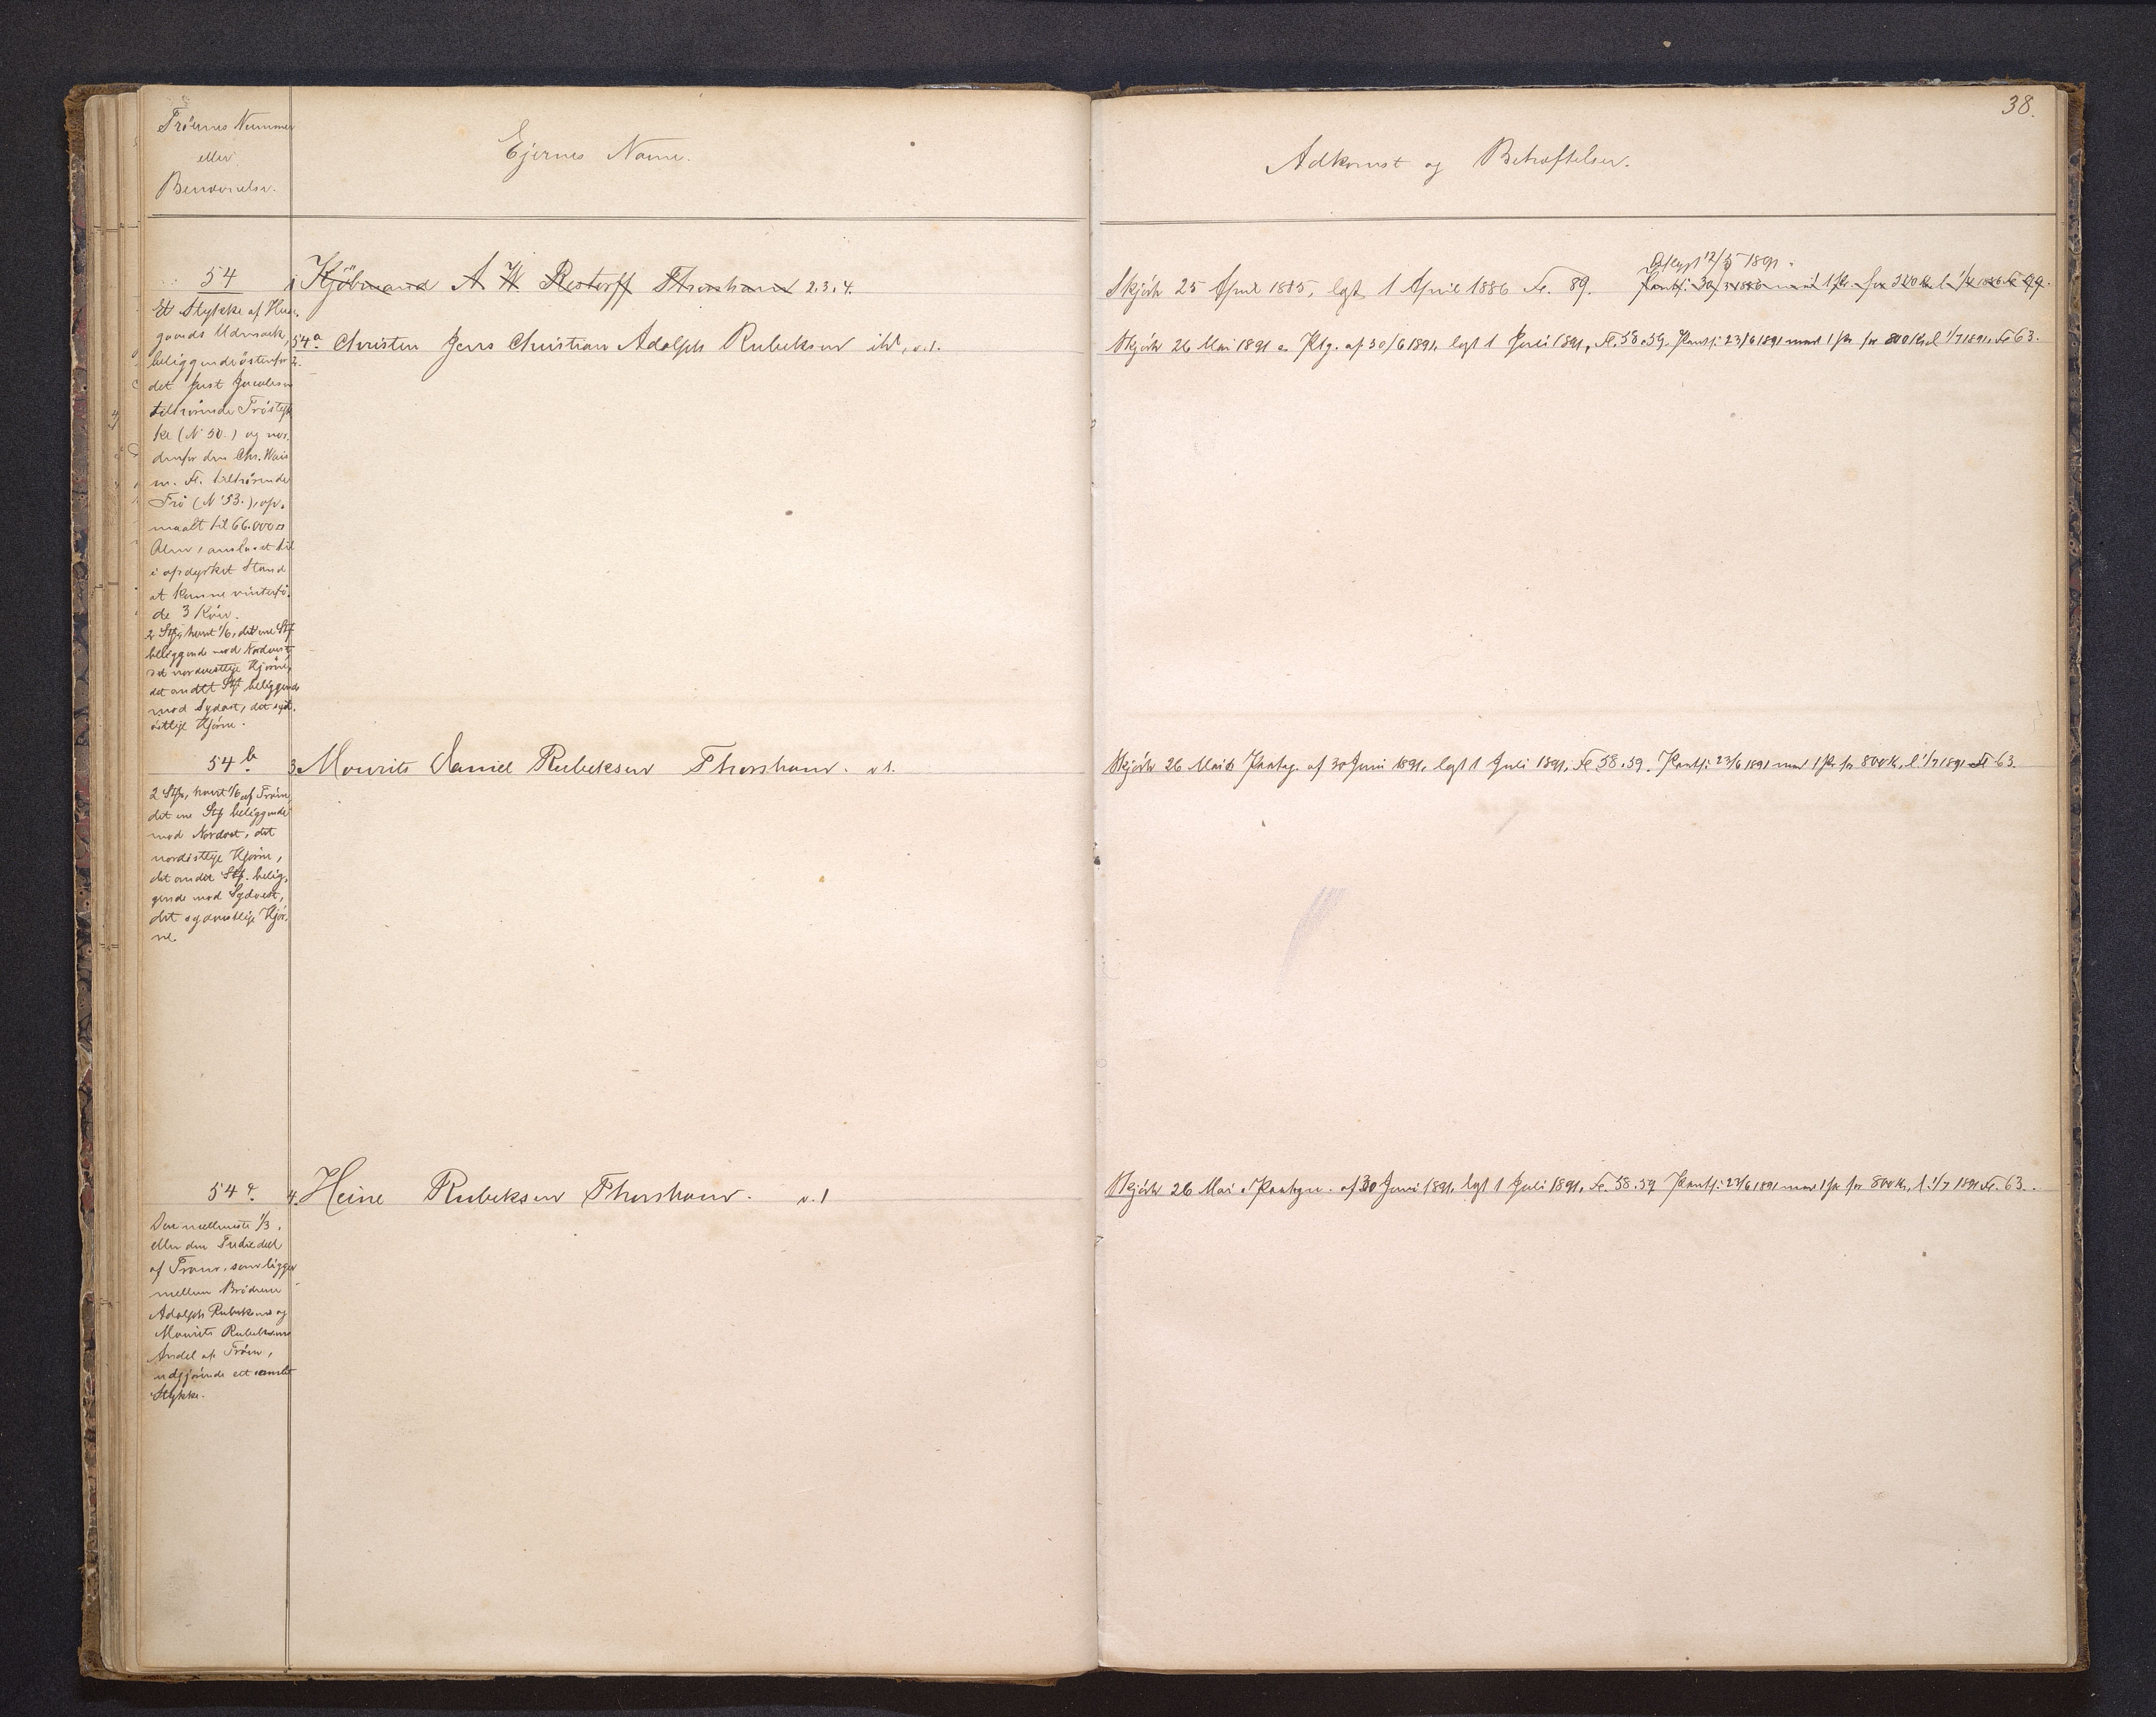 38.
Tröernes Nummer
eller
Benævnelse.
Ejernes Navne.
Adkomst og Behæftelser.
54
1 Kjöbmand A W Restorff Thorshavn 2.3.4.
Skjöde 25 April 1885, lgst 1 April 1886 Fo. 89.
Aflyst 12/5 1891.
Pantf: 30/3 1886 med 1 Pr. for 320 K l 1/4 1886 Fo 99.
Et Stykke af Huse-
gaards Udmark,
beliggende östenfor
det Just Jacobsen
tilhörende Tröstyk
ke (N 50.) og nor-
denfor den Chr. Wais
m. Fl. tilhörende
Trö (N 53.), op-
maalt til 66.000 □
Alen, anslaaet til
i opdyrket Stand
at kunne vinterfö-
de 3 Köer.
54a Christen Jens Christian Adolph Rubeksen ibd, v.1.
2.
Skjöde 26 Mai 1891 Ptg. af 30/6 1891, lgst 1 Juli 1891, Fo. 58.59. Pantf: 23/6 1891 med 1 Pr for 800 K l 1/7 1891, Fo 63.
2 Stk, hvert 1/6, det ene Stk
beliggende mod Nordvest
det nordvestlige Hjörne,
det andet Stk beliggende
mod Sydost, det syd-
östlige Hjörne.
54b
3. Mourits Daniel Rubeksen Thorshavn. v 1.
Skjöde 26 Mai Paateg. af 30 Juni 1891, lgst 1 Juli 1891, Fo 58.59. Pantf: 23/6 1891 med 1 Pr for 800 K, l 1/7 1891 Fo 63.
2 Stk, hvert 1/6 af Tröen,
det ene Stk beliggende
mod Nordost, det
nordöstlige Hjörne,
det andet Stk. belig-
gende mod Sydvest,
det sydvestlige Hjör-
ne.
54c
4. Heine Rubeksen Thorshavn. v. 1
Skjöde 26 Mai Paategn. af 30 Juni 1891, lgst 1 Juli 1891, Fo. 58.59 Pantf: 23/6 1891 med 1 Pr for 800 K, l. 1/7 1891 Fo. 63.
Den mellemste 1/3,
eller den Tredie del
af Tröen, som ligger
mellem Brödrene
Adolph Rubeksens og
Mourits Rubeksens
Andel af Tröen,
udgjörende et samlet
Stykke.